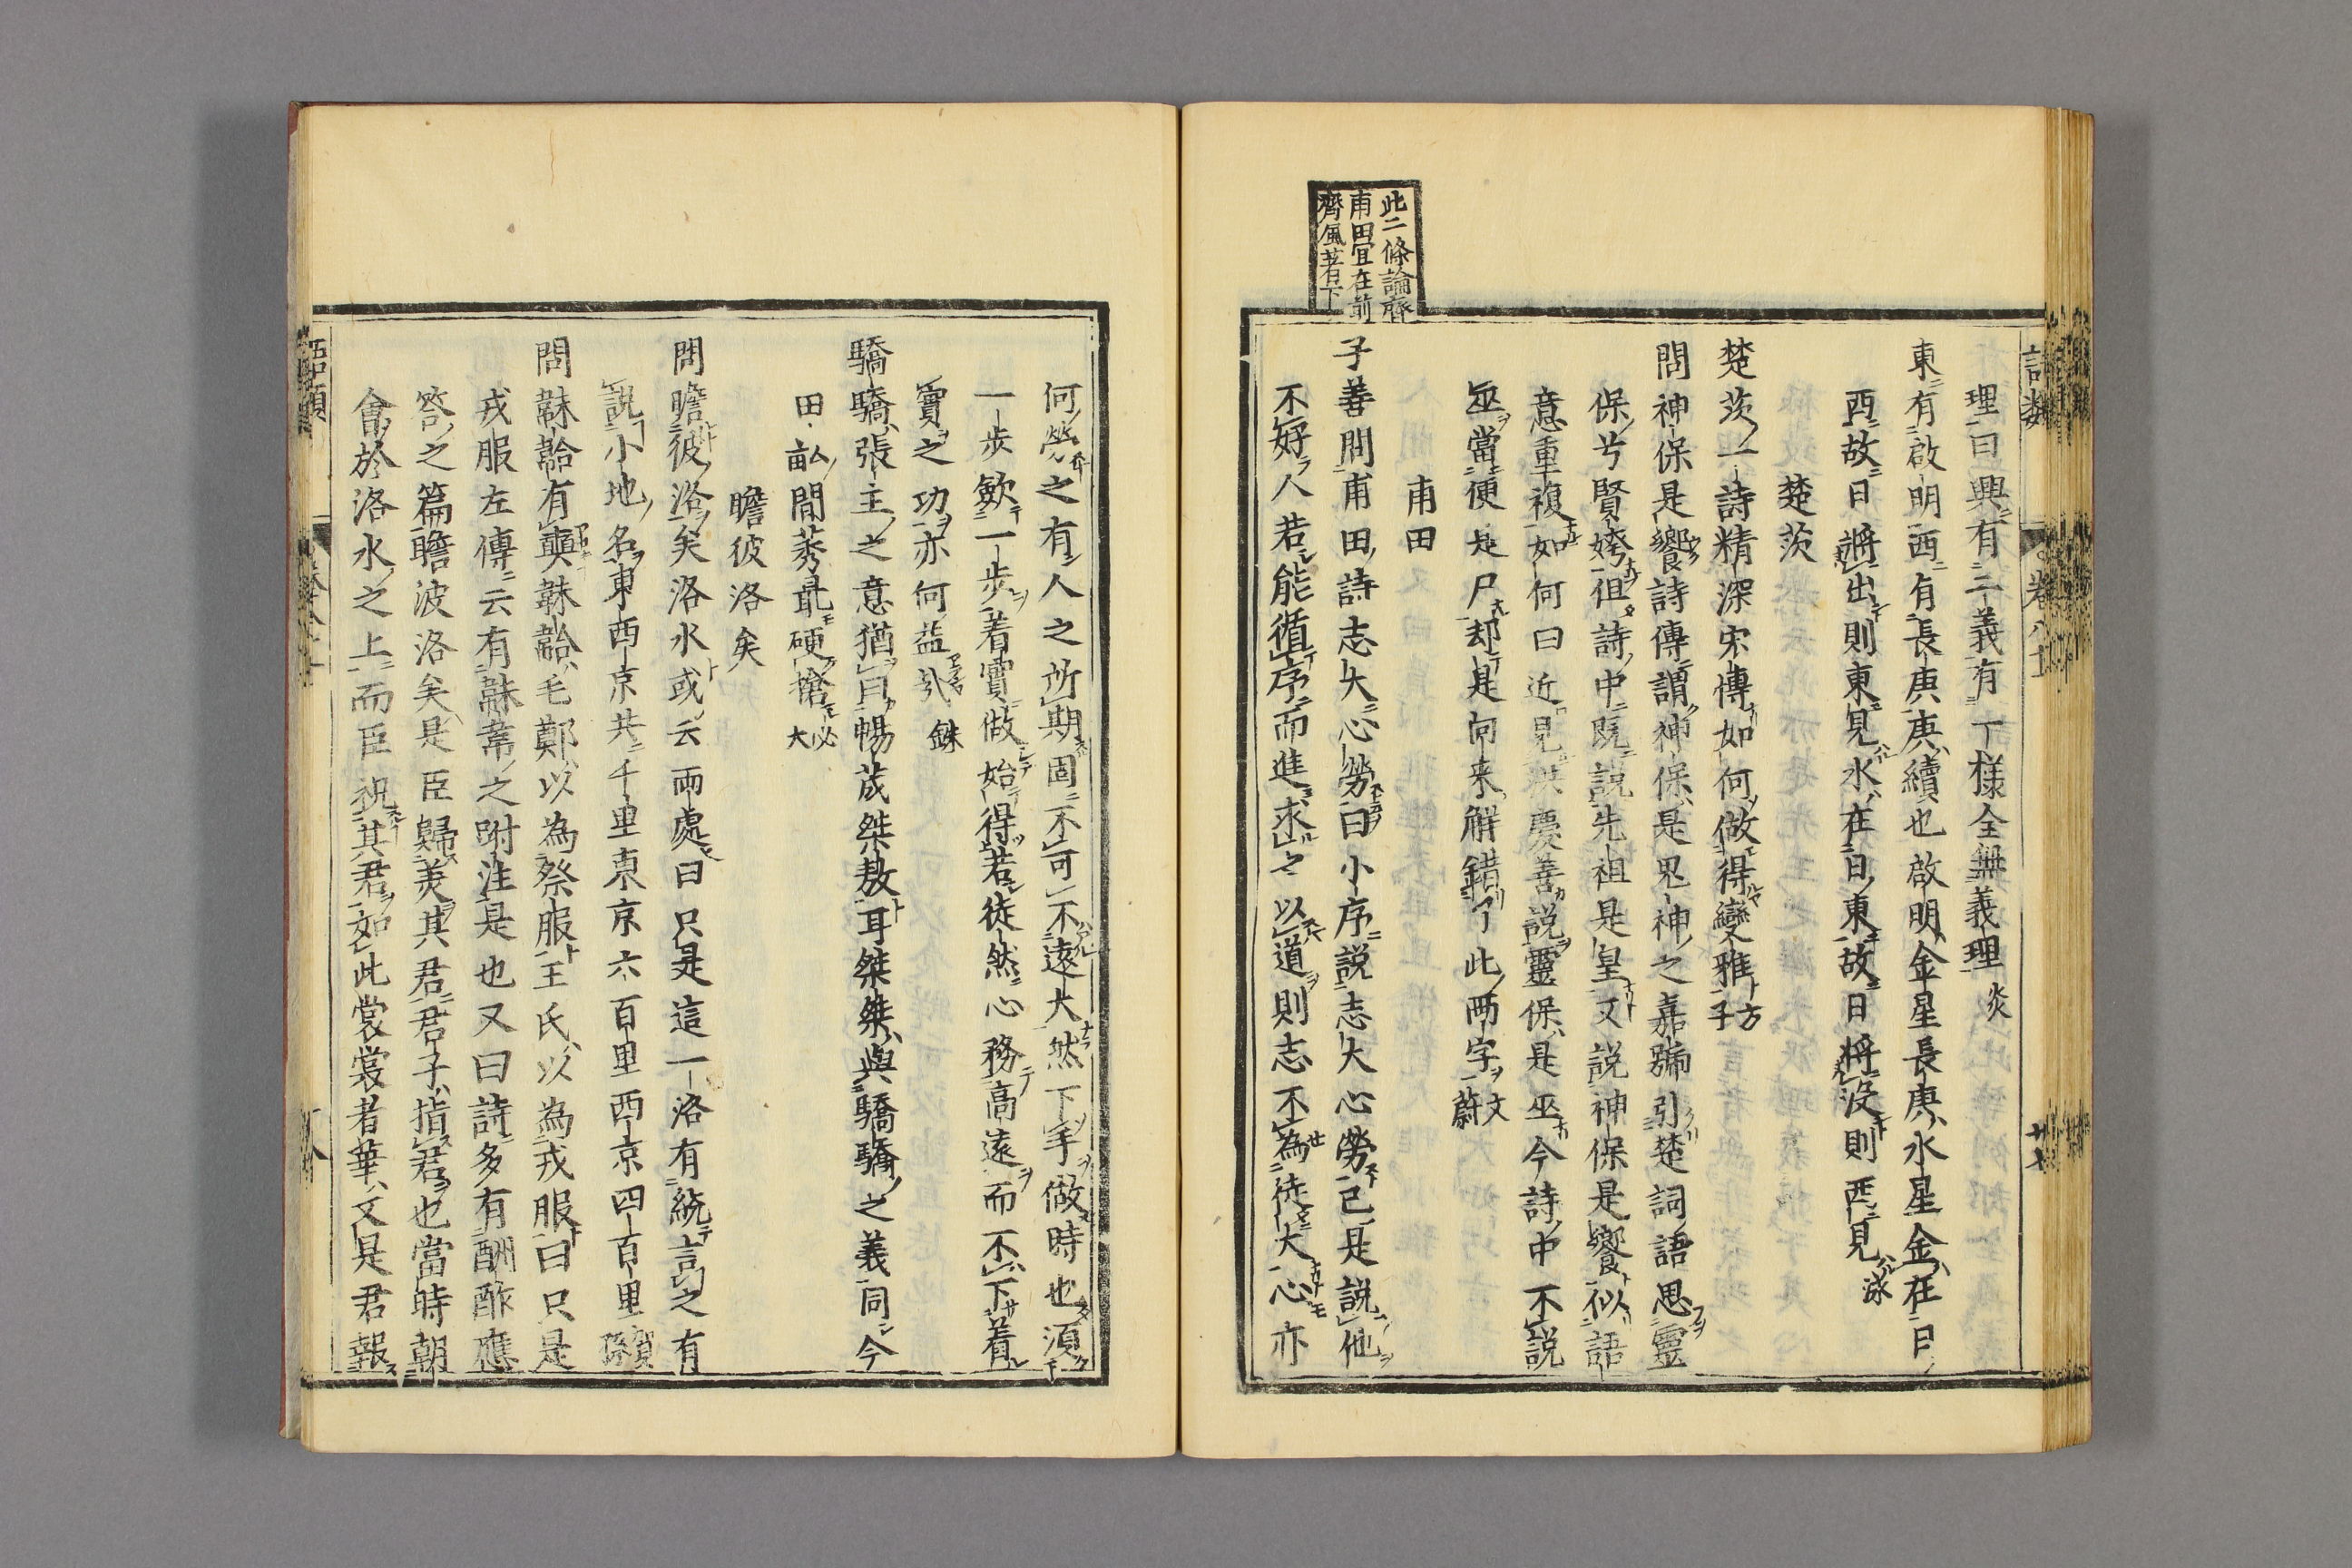 理曰興有二義有一樣全無義理 炎
東有啟明西有長庚庚續也啟明金星長庚水星金在日
西故日將出則東見水在日東故日將沒則西見 泳
楚茨
楚茨一詩精深宏博如何做得變雅 方子
問神保是饗詩傳謂神保是鬼神之嘉號引楚詞語思靈
保兮賢姱徂詩中既説先祖是皇又説神保是饗似語
意重複如何曰近見洪慶善説靈保是巫今詩中不説
巫當便是尸却是向来解錯了此两字 文蔚
甫田
此二條論齊
甫田宜在前
齊風著下
子善問甫田詩志大心勞曰小序説志大心勞已是説他
不好人若能循序而進求之以道則志不為徒大心亦
何勞之有人之所期固不可不遠大然下手做時也須
一步歛一步着實做始得若徒然心務高遠而不下着
實之功亦何益哉 銖
驕驕張主之意猶曰暢茂桀敖耳桀桀與驕驕之義同今
田畝間莠最硬搶 必大
瞻彼洛矣
問瞻彼洛矣洛水或云兩處曰只是這一洛有統言之有
説小地名東西京共千里東京六百里西京四百里 賀孫
問韎韐有奭韎韐毛鄭以為祭服王氏以為戎服曰只是
戎服左傳云有韎韋之跗注是也又曰詩多有酬酢應
答之篇瞻波洛矣是臣歸美其君君子指君也當時朝
會於洛水之上而臣祝其君如此裳裳者華又是君報